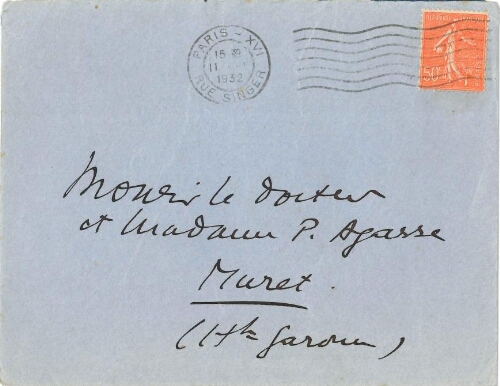 PARIS - XVI
15 30
11
1932
RUE SINGER
50 c
Monsieur le docteur
et Madame P. Agasse
Muret.
(Hte Garonne)